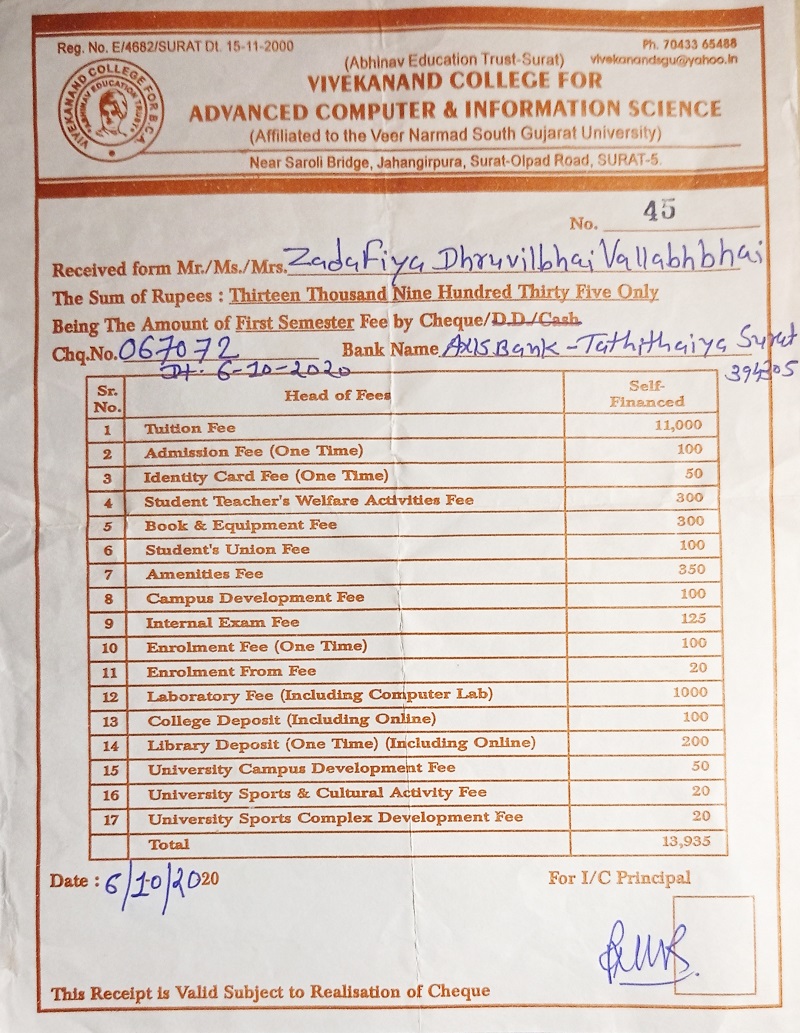 Reg. No. E/4682/SURAT Dt. 15-11-2000
Ph. 70433 65488
(Abhinav Education Trust-Surat)
vivekanandsgu@yahoo.in
VIVEKANAND COLLEGE FOR B.C.A.
ABHINAV EDUCATION TRUST
VIVEKANAND COLLEGE FOR
ADVANCED COMPUTER & INFORMATION SCIENCE
(Affiliated to the Veer Narmad South Gujarat University)
Near Saroli Bridge, Jahangirpura, Surat-Olpad Road, SURAT-5.
No. 45
Received form Mr./Ms./Mrs. Zadafiya Dhruvilbhai Vallabhbhai
The Sum of Rupees : Thirteen Thousand Nine Hundred Thirty Five Only
Being The Amount of First Semester Fee by Cheque/D.D./Cash
Chq.No. 067072 Bank Name Axis Bank - Tathithaiya Surat
Dt. 6-10-2020 394305
Sr. No. Head of Fees Self-Financed
1 Tuition Fee 11,000
2 Admission Fee (One Time) 100
3 Identity Card Fee (One Time) 50
4 Student Teacher's Welfare Activities Fee 300
5 Book & Equipment Fee 300
6 Student's Union Fee 100
7 Amenities Fee 350
8 Campus Development Fee 100
9 Internal Exam Fee 125
10 Enrolment Fee (One Time) 100
11 Enrolment From Fee 20
12 Laboratory Fee (Including Computer Lab) 1000
13 College Deposit (Including Online) 100
14 Library Deposit (One Time) (Including Online) 200
15 University Campus Development Fee 50
16 University Sports & Cultural Activity Fee 20
17 University Sports Complex Development Fee 20
Total 13,935
Date : 6/10/2020
For I/C Principal
This Receipt is Valid Subject to Realisation of Cheque